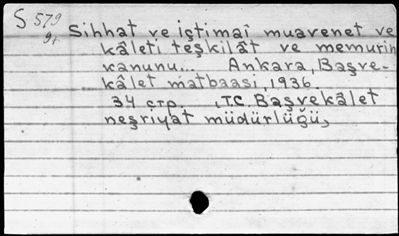 S 579
91.
Sihhat ve içtimaî muavenet ve
kâleti teşkilât ve memurin
kanunu... Ankara, Başve-
kâlet matbaasi, 1936.
34 стр. , T.C. Başvekâlet
neşriyat müdürlüğü,